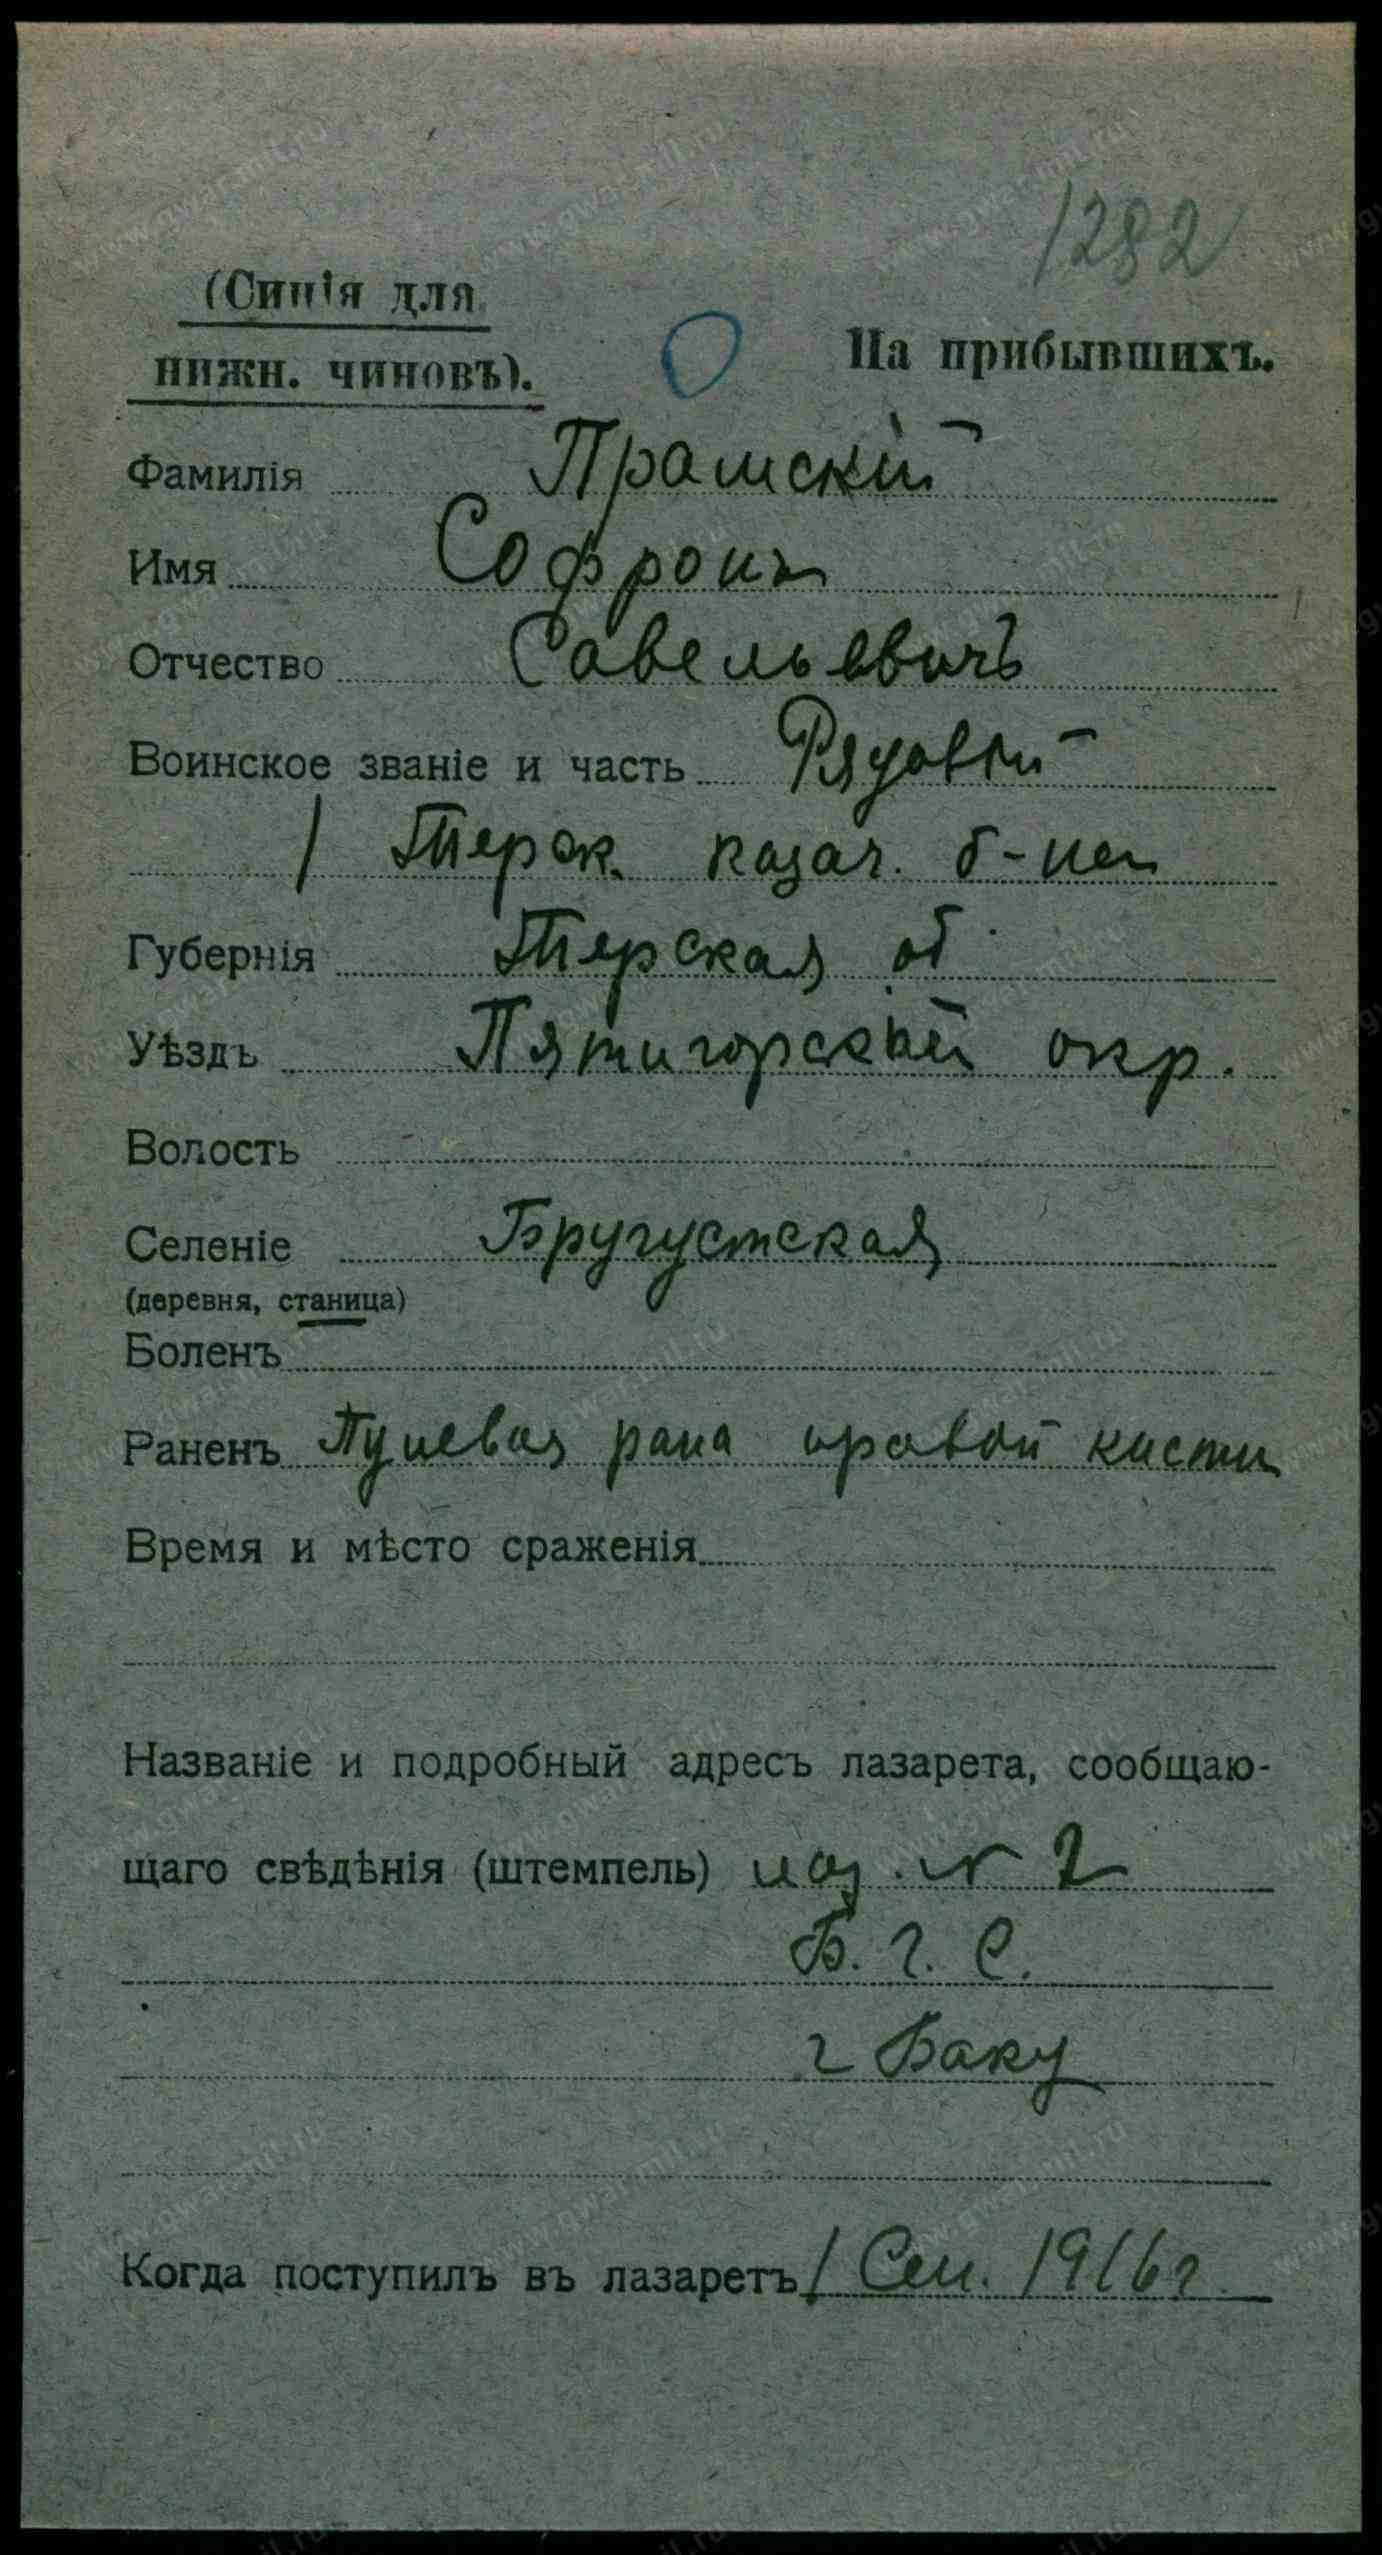 1282
(Синія для
нижн. чиновъ).
На прибывшихъ.
Фамилія Прамскій
Имя Софронъ
Отчество Савельевичъ
Воинское званіе и часть Рядовый
1 Терск. казач. б-iей
Губернія Терская об.
Уѣздъ Пятигорскій окр.
Волость
Селеніе Бругустская
(деревня, станица)
Боленъ
Раненъ Пулевая рана правой кисти
Время и мѣсто сраженія
Названіе и подробный адресъ лазарета, сообщаю-
щаго свѣдѣнія (штемпель) лаз. № 2
Б. г. с.
г Баку
Когда поступилъ въ лазаретъ 1 Сен. 1916 г.